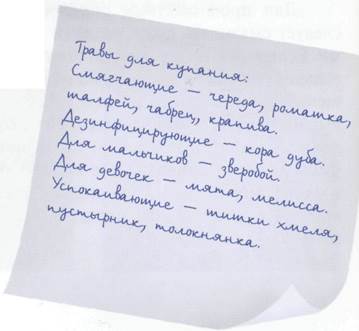 Травы для купания:
Смягчающие – череда, ромашка,
шалфей, чабрец, крапива.
Дезинфицирующие – кора дуба.
Для мальчиков – зверобой.
Для девочек – мята, мелисса.
Успокаивающие – шишки хмеля,
пустырник, толокнянка.